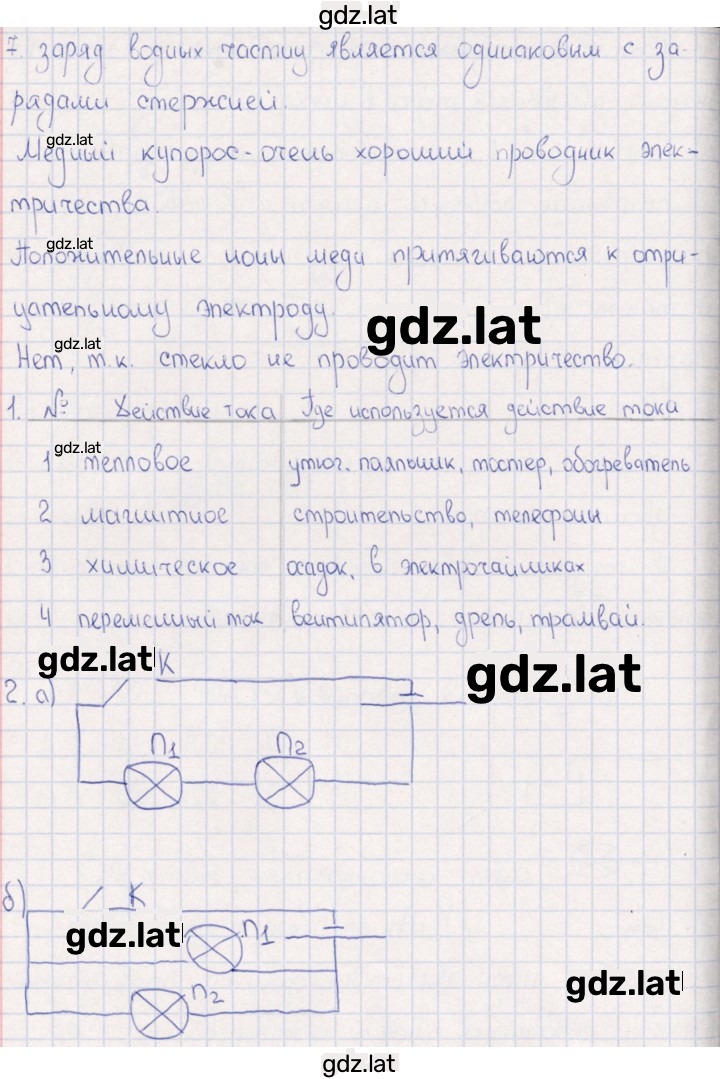 gdz.lat
7. заряд водных частиц является одинаковым с за-
рядами стержней.
gdz.lat
Медный купорос - очень хороший проводник элек-
тричества.
gdz.lat
Положительные ионы меди притягиваются к отри-
цательному электроду.
gdz.lat
gdz.lat
Нет, т.к. стекло не проводит электричество.
1. № Действие тока Где используется действие тока
gdz.lat
1 тепловое утюг. паяльник, тостер, обогреватель
2 магнитное строительство, телефоны
3 химическое осадок, в электрочайниках
4 переменный ток вентилятор, дрель, трамвай.
gdz.lat K
gdz.lat
2. а)
Л1 Л2
б) K
gdz.lat Л1
gdz.lat
Л2
gdz.lat